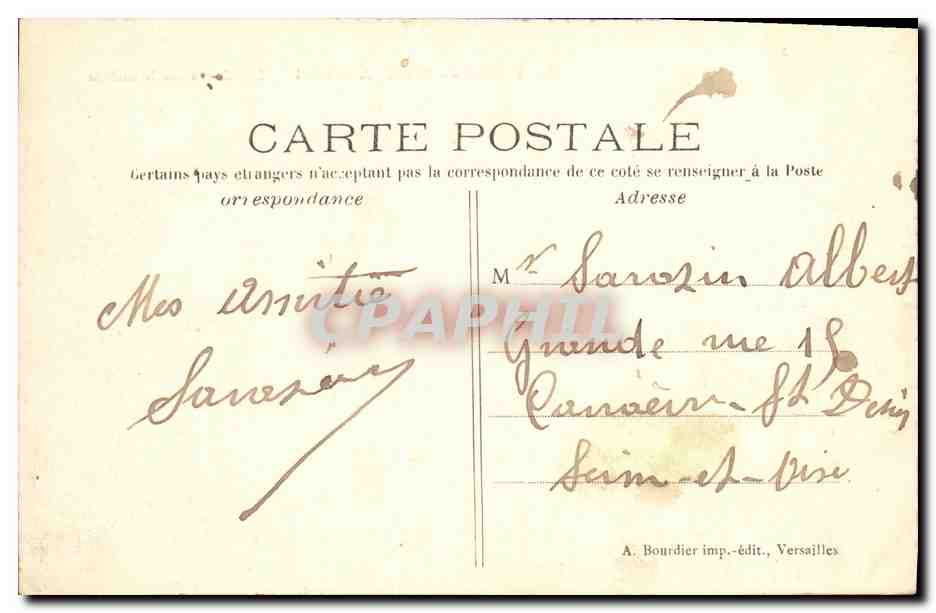 CARTE POSTALE
Certains pays etrangers n'acceptant pas la correspondance de ce coté se renseigner à la Poste
orrespondance
Adresse
Mes Amitié
Sarazin
Mr Sarazin Albert
Grande rue 15
St Denis
Seine-et-Oise
CPAPHIL
A. Bourdier imp.-édit., Versailles